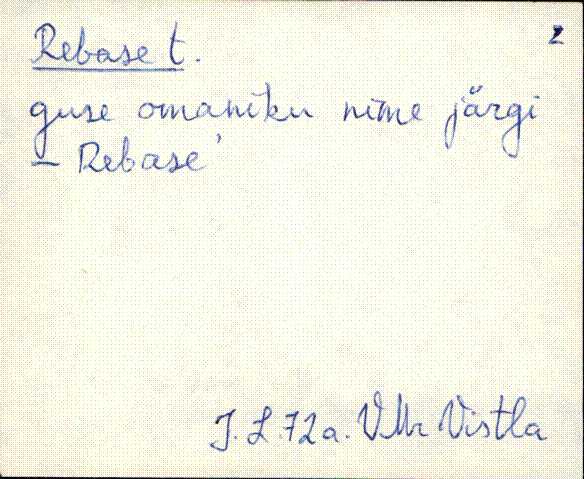 Rebase t. 2
guse omaniku nime järgi
– Rebase'
J. L. 72 a. VMr Vistla